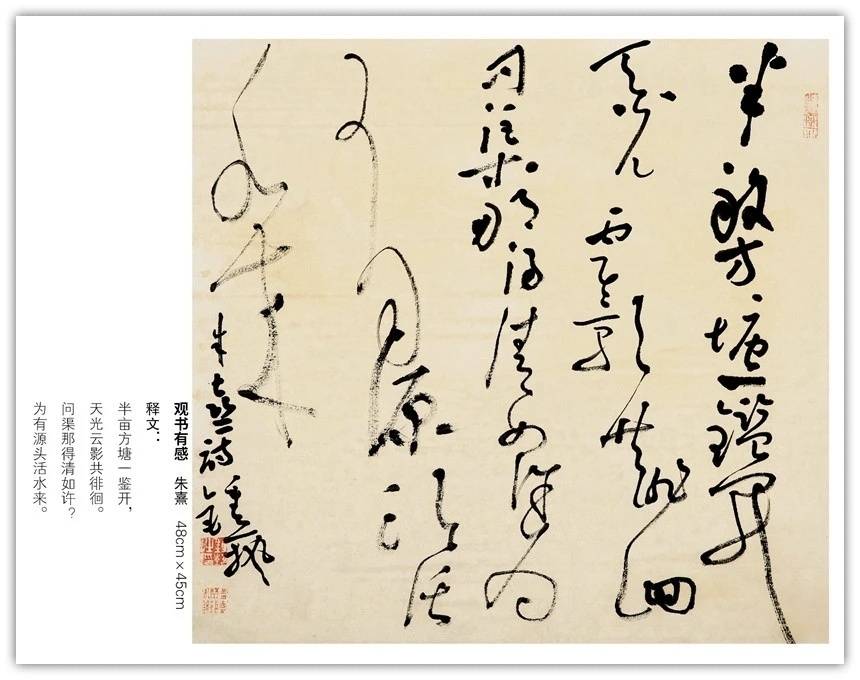 半畝方塘一鑑開
天光雲影共徘徊
問渠那得清如許為
有源頭活
水來
朱熹詩
观书有感 朱熹 48cm×45cm
释文：
半亩方塘一鉴开，
天光云影共徘徊。
问渠那得清如许？
为有源头活水来。